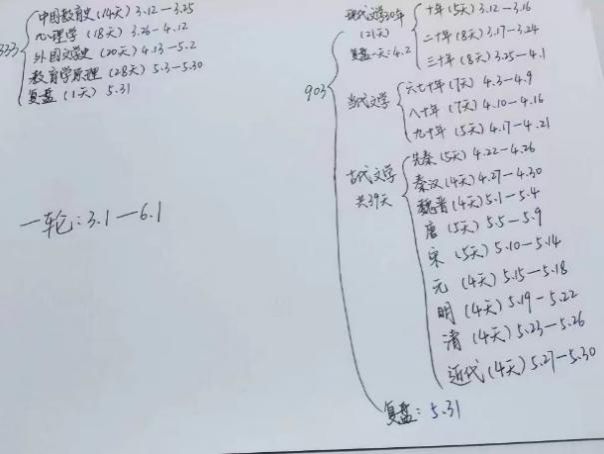 333
中国教育史(14天)3.12—3.25
心理学(18天)3.26-4.12
外国文学史(20天)4.13—5.2
教育学原理(28天)5.3—5.30
复盘(1天)5.31
一轮:3.1—6.1
903
现代文学30年
(21天)
复盘一天:4.2
十年(5天)3.12—3.16
二十年(8天)3.17—3.24
三十年(8天)3.25—4.1
当代文学
六七十年(7天)4.3—4.9
八十年(7天)4.10—4.16
九十年(5天)4.17—4.21
古代文学
共39天
先秦(5天)4.22—4.26
秦汉(4天)4.27—4.30
魏晋(4天)5.1—5.4
唐(5天)5.5—5.9
宋(5天)5.10—5.14
元(4天)5.15—5.18
明(4天)5.19—5.22
清(4天)5.23—5.26
近代(4天)5.27—5.30
复盘:5.31